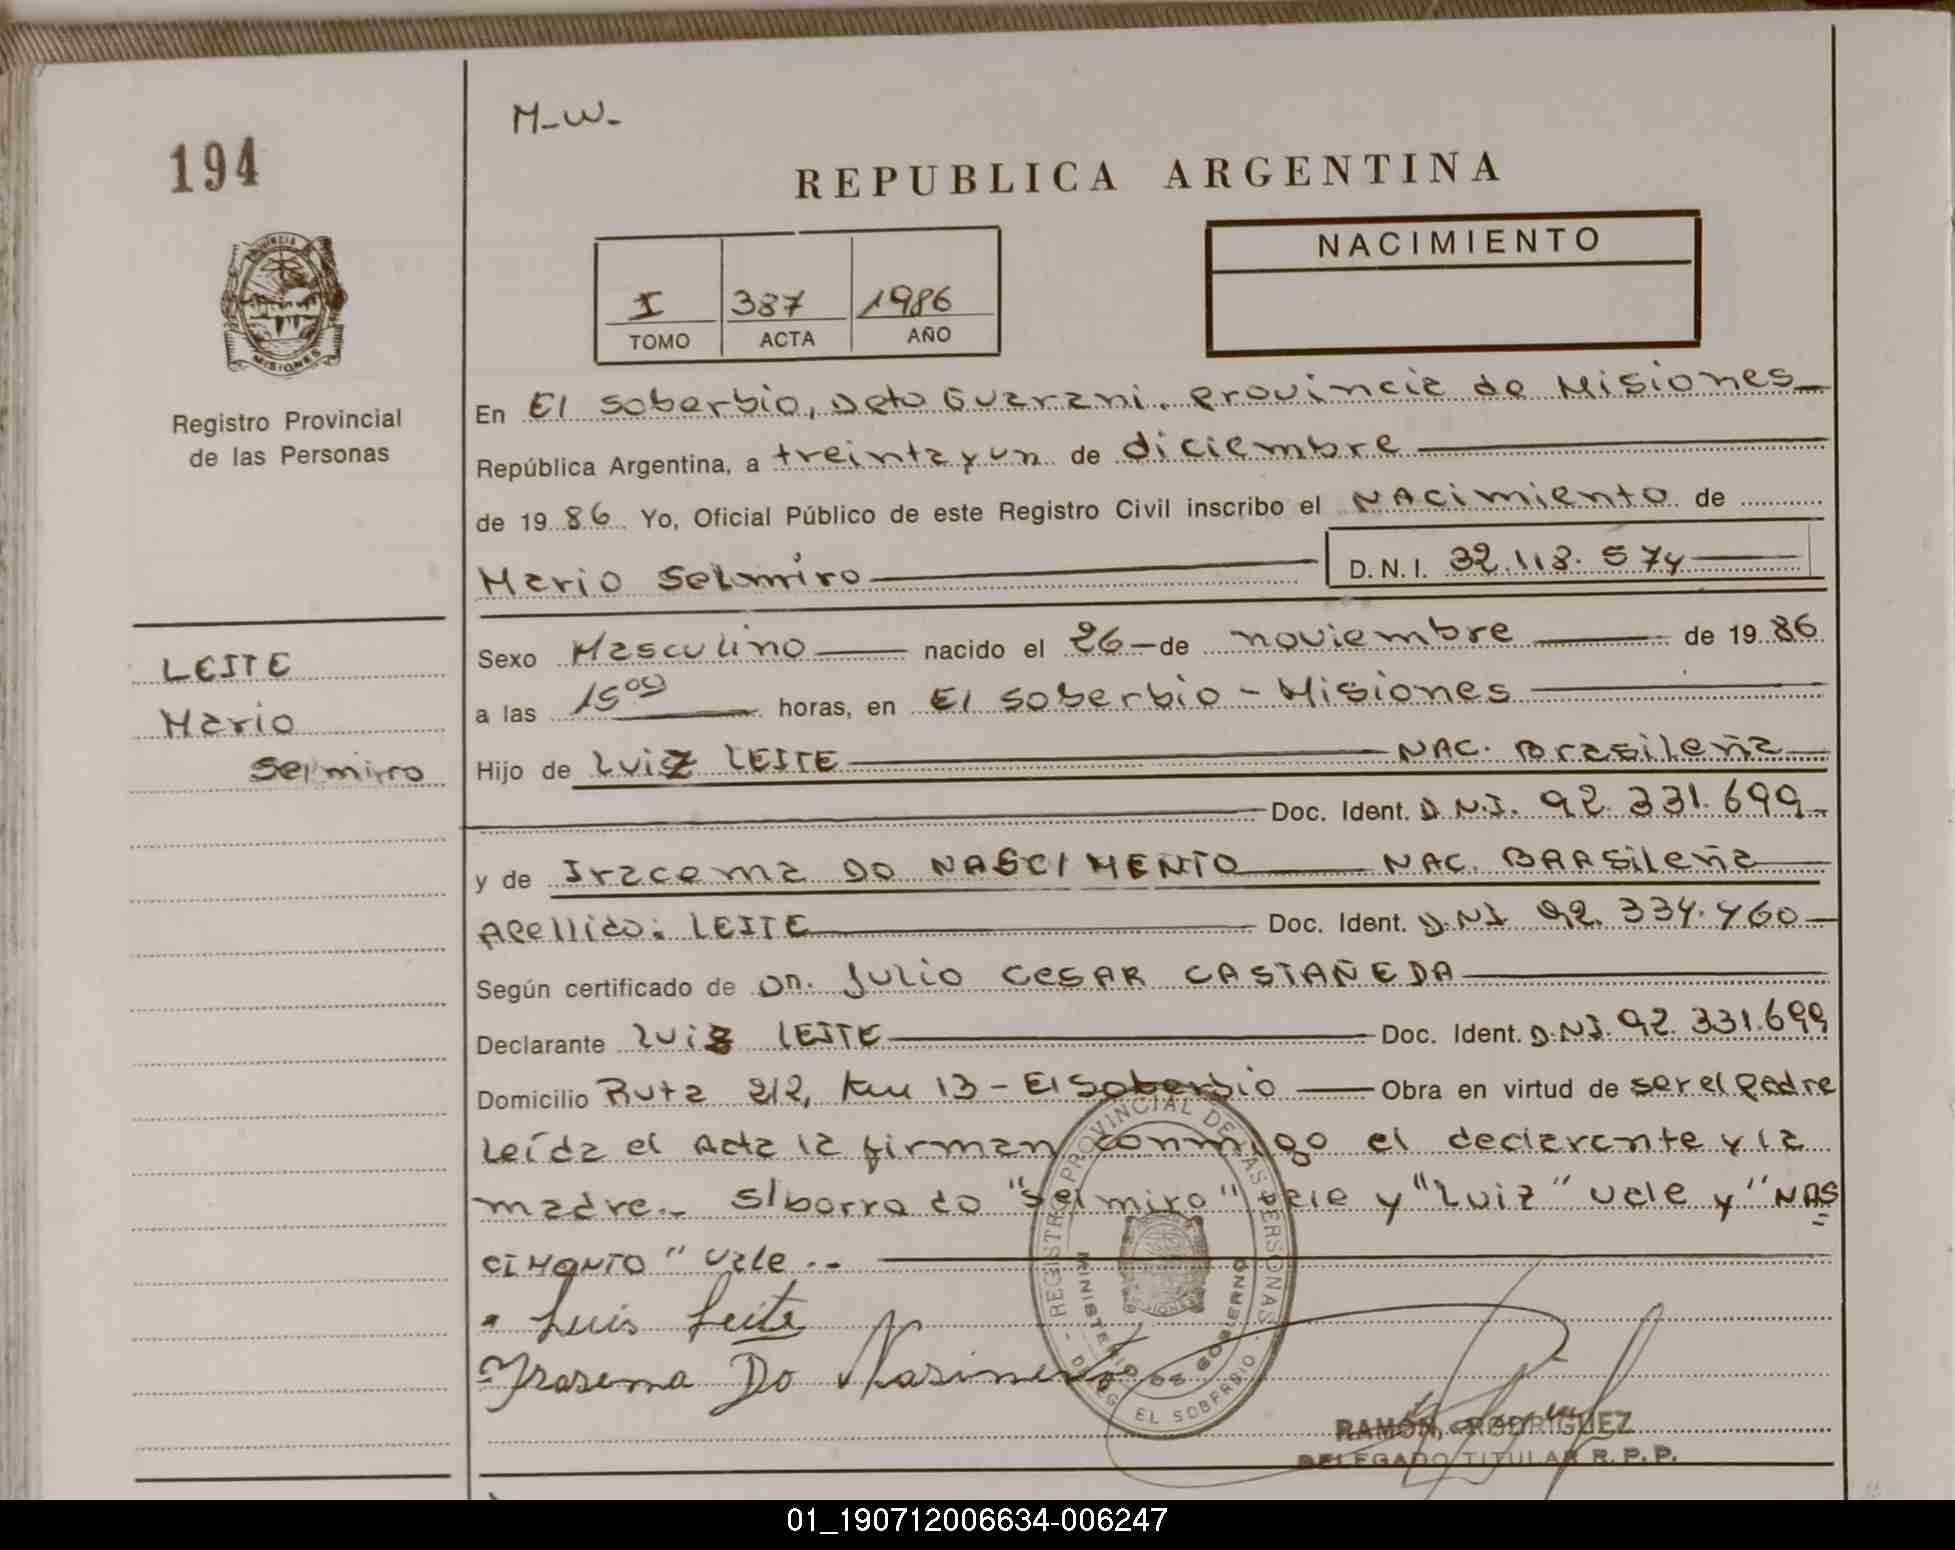 M-W-
194
REPUBLICA ARGENTINA
PROVINCIA DE
MISIONES
Registro Provincial
de las Personas
I 387 1986
TOMO ACTA AÑO
NACIMIENTO
En El Soberbio, Dpto Guarani. Provincia de Misiones
República Argentina, a treinta y un de diciembre
de 1986 Yo, Oficial Público de este Registro Civil inscribo el NAcimiento de
Mario Selmiro D.N.I. 32.118.574
LEITE
Mario
Selmiro
Sexo Masculino nacido el 26 de noviembre de 1986
a las 15 00 horas, en El Soberbio - Misiones
Hijo de Luiz LEITE NAC. Brasileña
Doc. Ident. D.N.I. 92.331.699
y de Iracema DO NASCIMENTO NAC. BRASileña
Apellido: LEITE Doc. Ident. D.N.I 92.334.760
Según certificado de Dn. Julio CESAR CASTAÑEDA
Declarante Luiz LEITE Doc. Ident. D.N.I. 92.331.699
Domicilio Ruta 212, Km 13 - El Soberbio Obra en virtud de ser el padre
Leída el Acta la firman conmigo el declarante y la
madre.- S/borrado "Selmiro" vale y "Luiz" vale y "NAS
CIMONTO" vale.-
Luis Leite
Irasema Do Nasimento
REGISTRO PROVINCIAL DE LAS PERSONAS
MINISTERIO DE GOBIERNO
DELEG. EL SOBERBIO
RAMON RODRIGUEZ
DELEGADO TITULAR R.P.P.
01_190712006634-006247